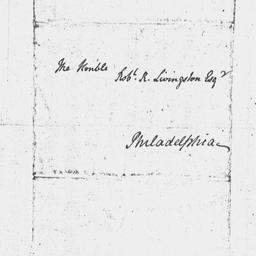 The Honble Robt. R. Livingston Esqr
Philadelphia